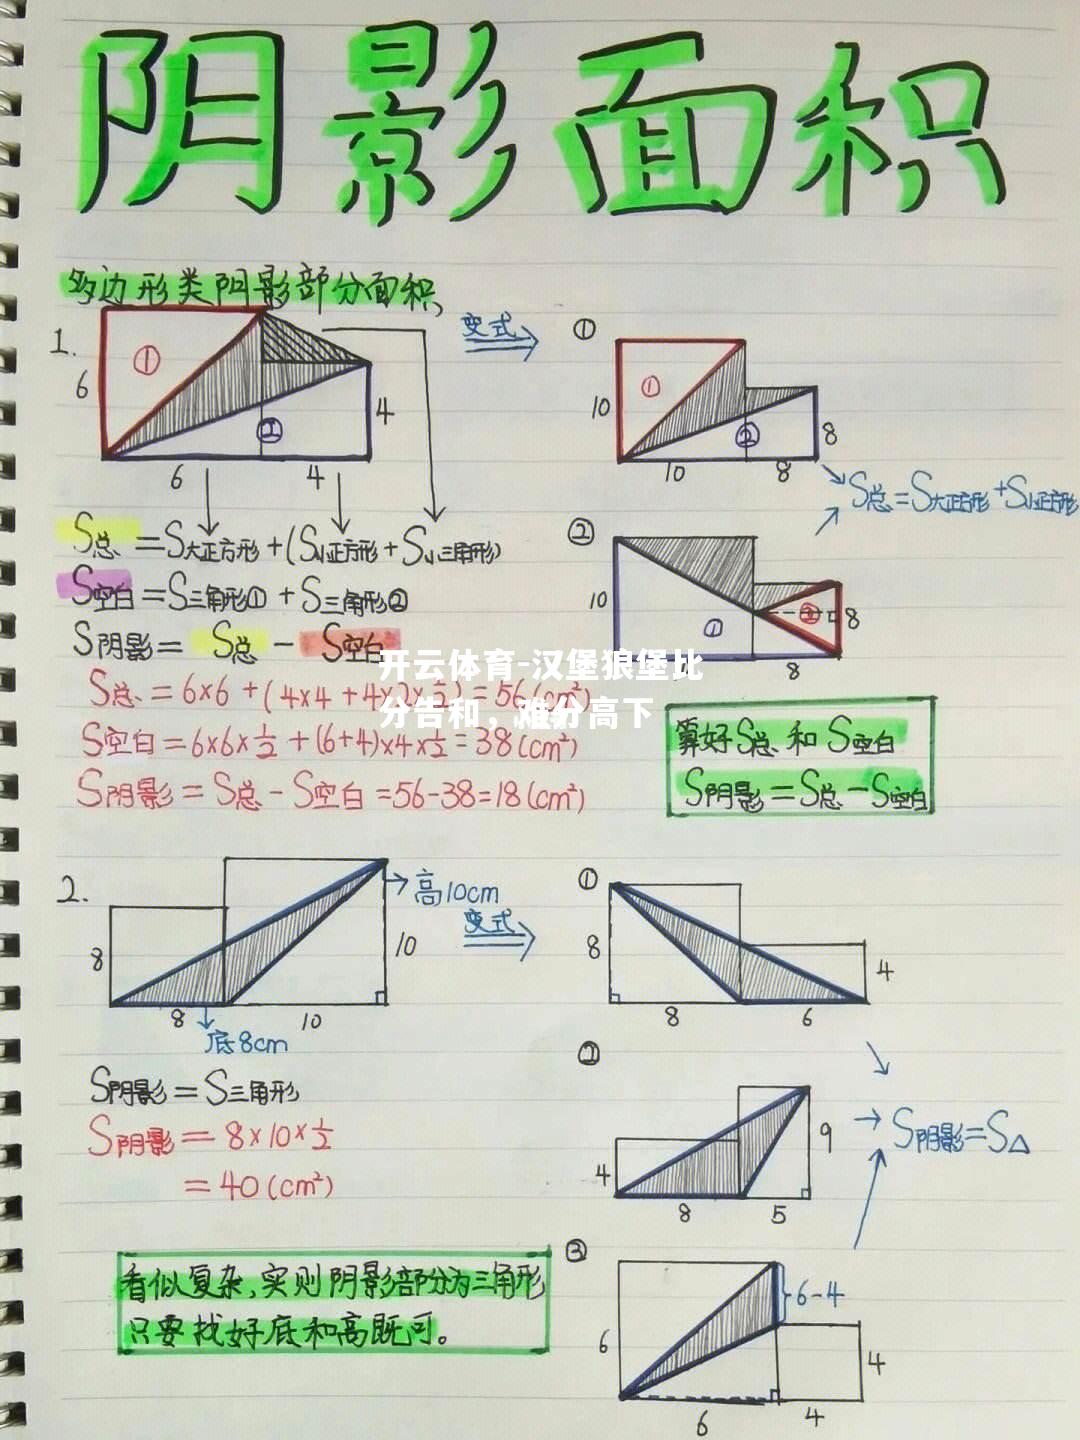 阴影面积
多边形类阴影部分面积
1.
①
6
②
4
6
4
变式
①
①
10
②
8
10
8
S总=S大正方形+S小正方形
②
10
①
②
8
8
S总=S大正方形+(S小正方形+S小三角形)
S空白=S三角形①+S三角形②
S阴影=S总-S空白
S总=6×6+(4×4+4×2×½)=56(cm²)
S空白=6×6×½+(6+4)×4×½=38(cm²)
S阴影=S总-S空白=56-38=18(cm²)
开云体育-汉堡狼堡比
分告和，难分高下
算好S总和S空白
S阴影=S总-S空白
2.
高10cm
8
10
8
10
底8cm
变式
①
8
4
8
6
S阴影=S三角形
S阴影=8×10×½
=40(cm²)
②
4
9
8
5
S阴影=S△
看似复杂,实则阴影部分为三角形
只要找好底和高既可。
③
6-4
6
4
6
4